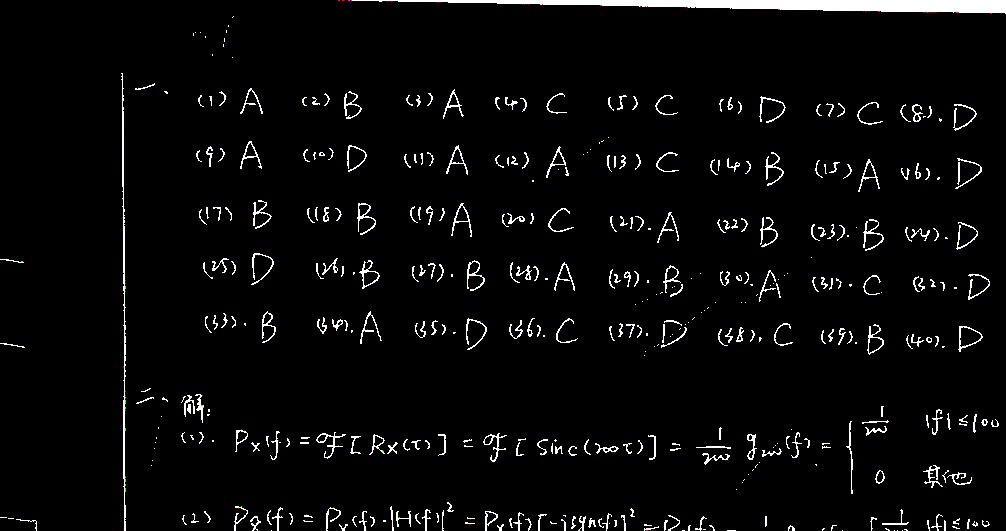 一、 (1) A (2) B (3) A (4) C (5) C (6) D (7) C (8). D
(9) A (10) D (11) A (12) A (13) C (14) B (15) A (16). D
(17) B (18) B (19) A (20) C (21). A (22) B (23). B (24). D
(25) D (26). B (27). B (28). A (29). B (30). A (31). C (32). D
(33). B (34). A (35). D (36). C (37). D (38). C (39). B (40). D
二、 解:
(1). Px(f) = ℱ[Rx(τ)] = ℱ[Sinc(200τ)] = 1/200 g200(f) = { 1/200 |f|≤100
0 其他